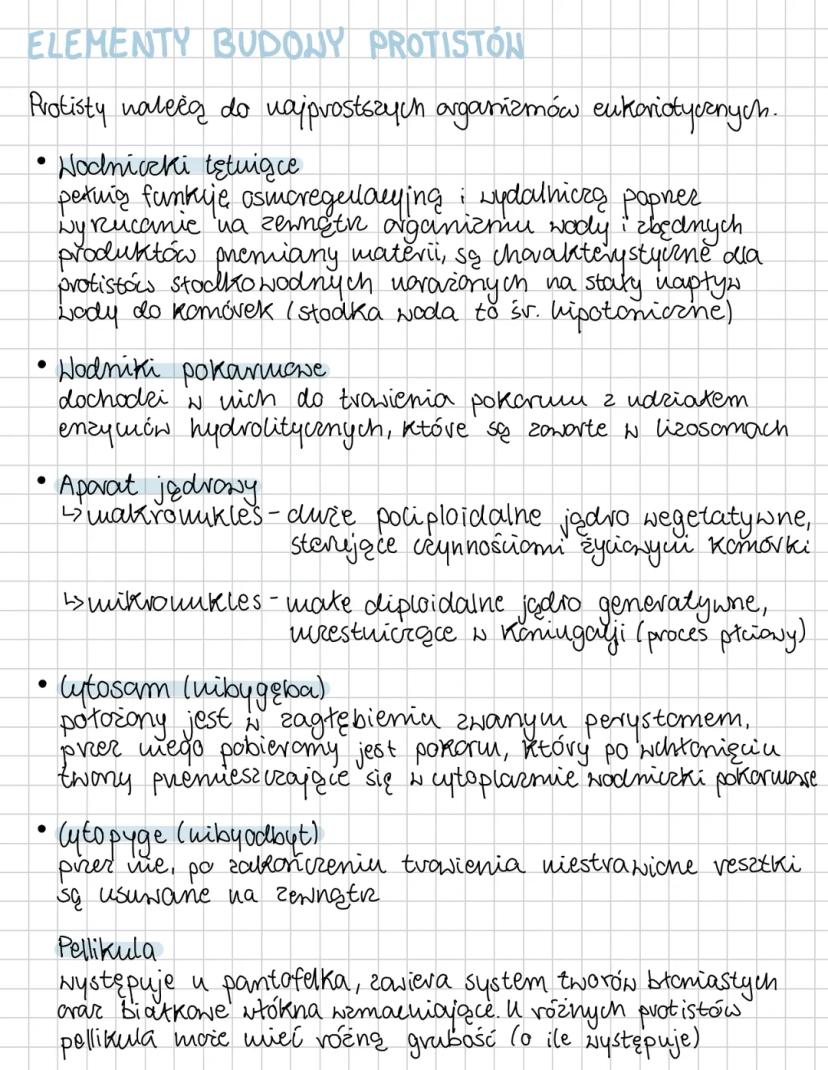 ELEMENTY BUDOWY PROTISTÓW
Protisty należą do najprostszych organizmów eukariotycznych.
• Wodniczki tętniące
pełnią funkcję osmoregulacyjną i wydalniczą poprzez
wyrzucanie na zewnątrz organizmu wody i zbędnych
produktów przemiany materii, są charakterystyczne dla
protistów słodkowodnych narażonych na stały napływ
wody do komórek (słodka woda to śr. hipotoniczne)
• Wodniki pokarmowe
dochodzi w nich do trawienia pokarmu z udziałem
enzymów hydrolitycznych, które są zawarte w lizosomach
• Aparat jądrowy
↳ makronukles - duże poliploidalne jądro wegetatywne,
sterujące czynnościami życiowymi komórki
↳ mikronukles - małe diploidalne jądro generatywne,
uczestniczące w koniugacji (proces płciowy)
• Cytosom (nibygęba)
położony jest w zagłębieniu zwanym perystomem,
przez niego pobieramy jest pokarm, który po wchłonięciu
tworzy przemieszczające się w cytoplazmie wodniczki pokarmowe
• Cytopyge (nibyodbyt)
przez nie, po zakończeniu trawienia niestrawione resztki
są usuwane na zewnątrz
Pellikula
występuje u pantofelka, zawiera system tworów błoniastych
oraz białkowe włókna wzmacniające. U różnych protistów
pellikula może mieć różną grubość (o ile występuje)